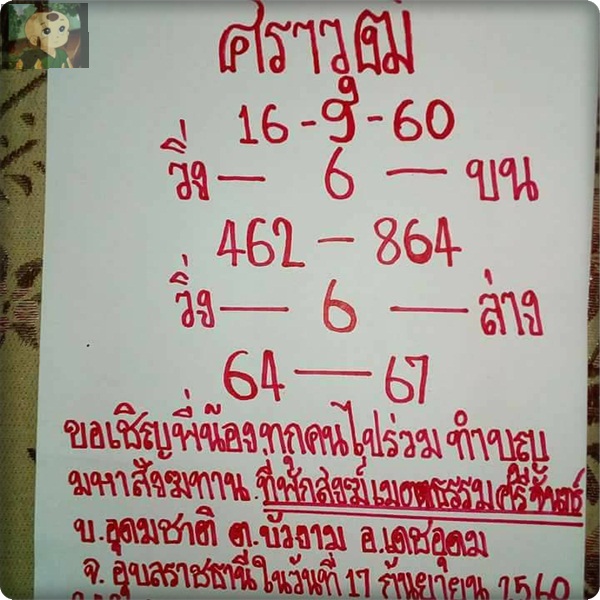 ศราวุฒิ
16-9-60
วิ่ง — 6 — บน
462 — 864
วิ่ง — 6 — ล่าง
64 — 67
ขอเชิญพี่น้องทุกคนไปร่วมทำบุญ
มหาสังฆทาน ที่พักสงฆ์เมตตาธรรมศรีจันทร์
บ.อุดมชาติ ต.บัวงาม อ.เดชอุดม
จ.อุบลราชธานีในวันที่ 17 กันยายน 2560